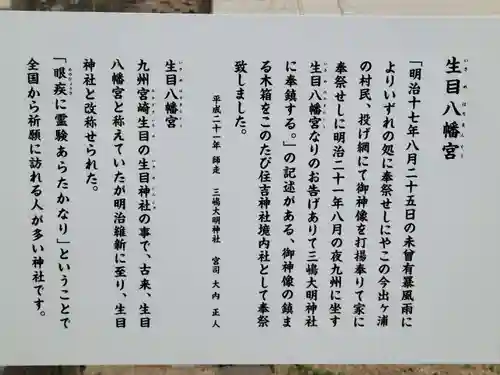 生目八幡宮
いきめはちまんぐう
「明治十七年八月二十五日の未曾有暴風雨に
よりいずれの処に奉祭せしにやこの今出ヶ浦
の村民、投げ網にて御神像を打揚奉りて家に
奉祭せしに明治二十一年八月の夜九州に坐す
生目八幡宮なりのお告げありて三嶋大明神社
に奉鎮する。」の記述がある、御神像の鎮ま
る木箱をこのたび住吉神社境内社として奉祭
致しました。
平成二十一年 師走 三嶋大明神社 宮司 大内 正人
生目八幡宮
九州宮崎生目の生目神社の事で、古来、生目
八幡宮と称えていたが明治維新に至り、生目
神社と改称せられた。
「眼疾に霊験あらたかなり」ということで
全国から祈願に訪れる人が多い神社です。